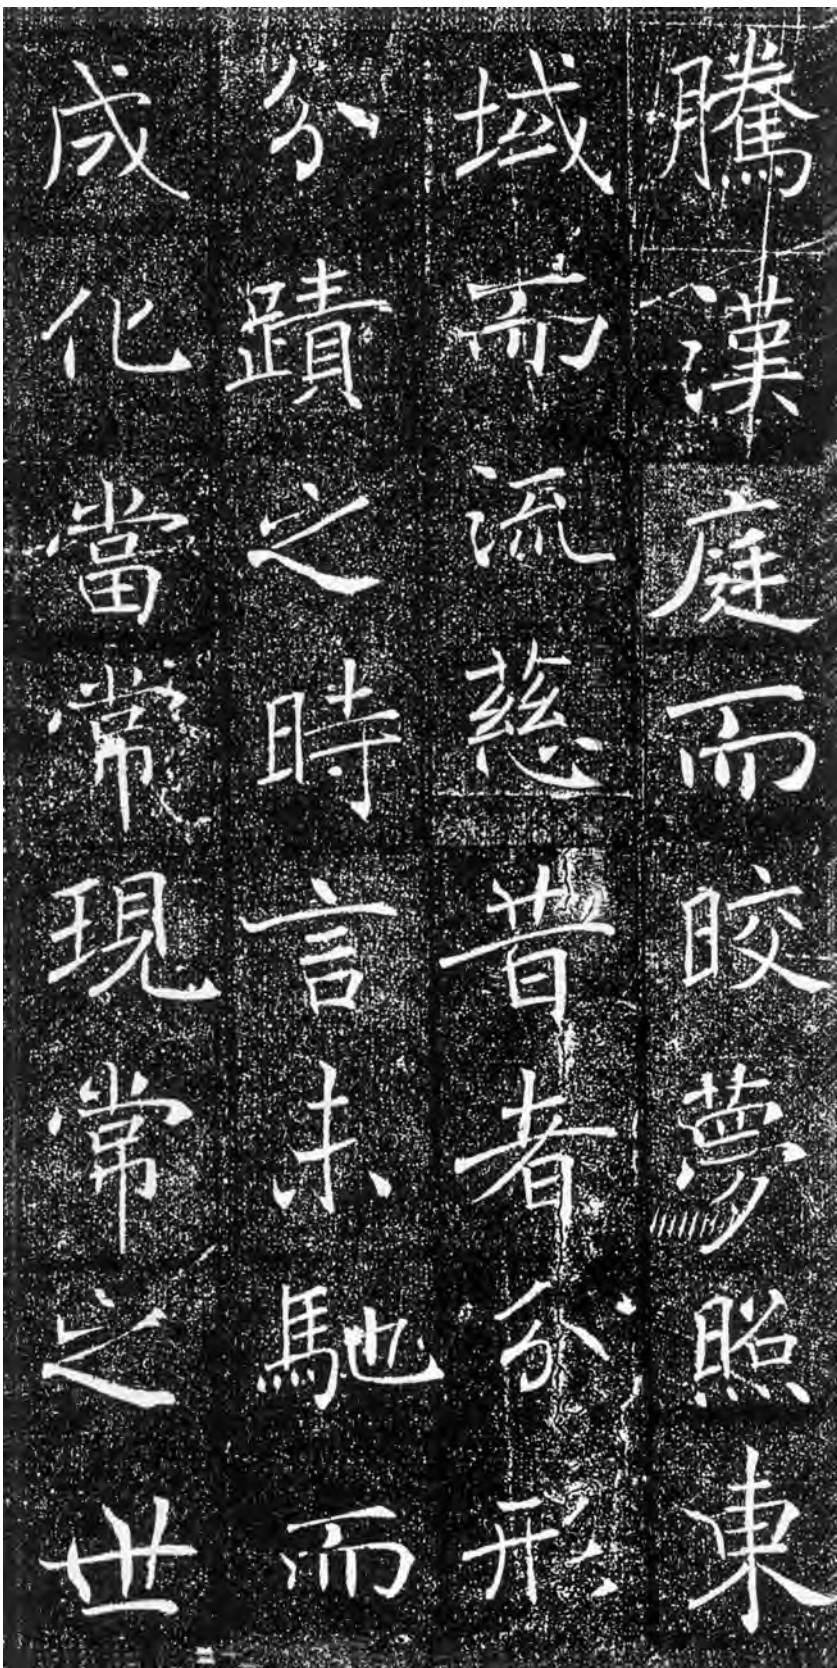 騰漢庭而晈夢照東
域而流慈昔者分形
分蹟之時言未馳而
成化當常現常之世